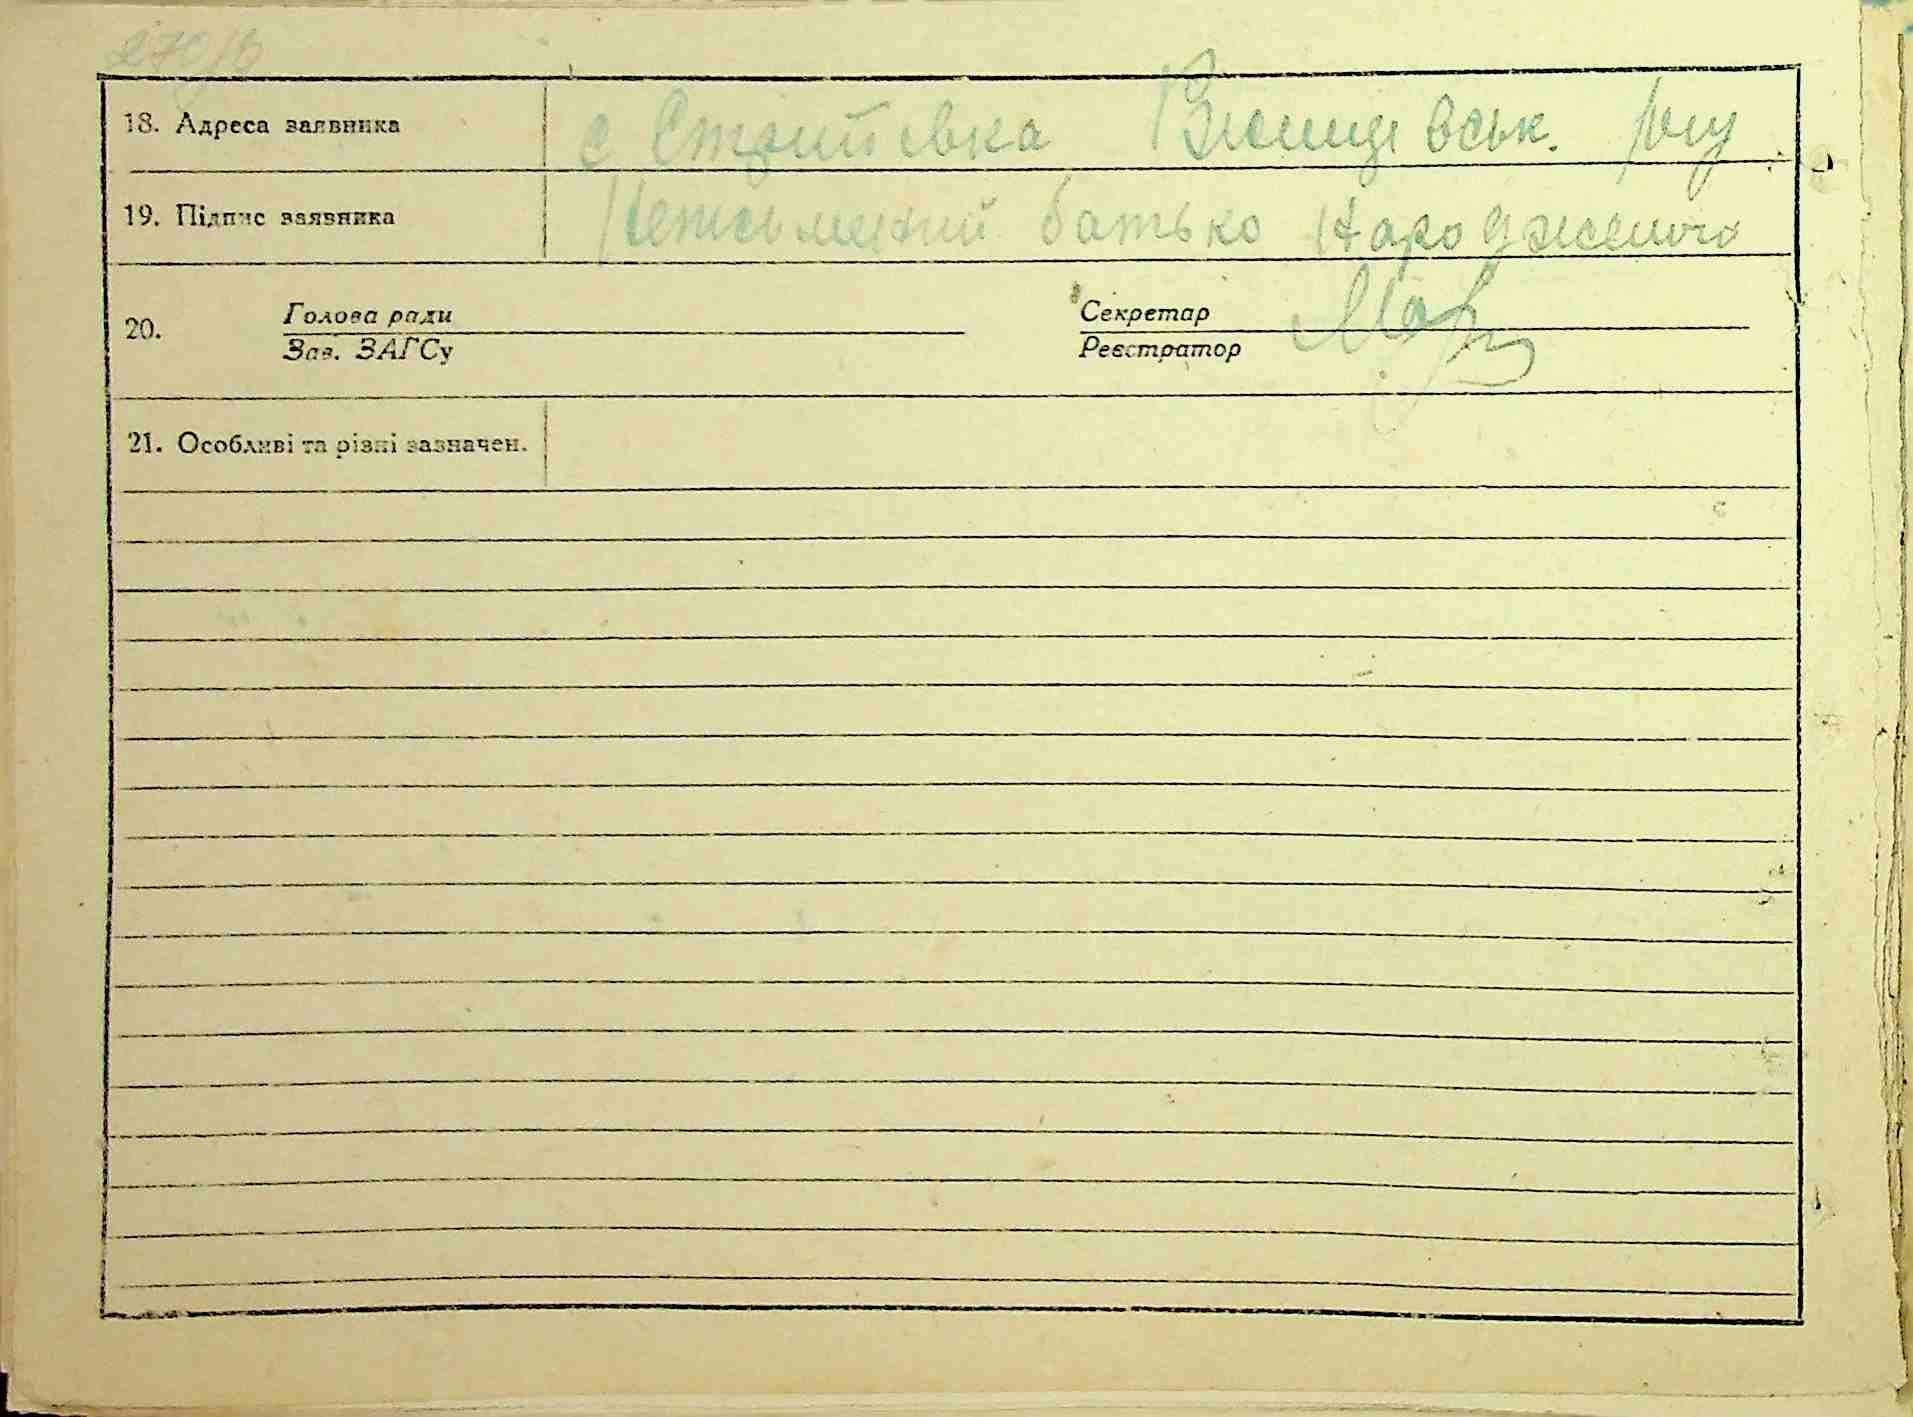 270/в
18. Адреса заявника с Стриївка Ржищівськ. р/ну
19. Підпис заявника Неписьменний батько народженого
20. Голова ради Секретар
Зав. ЗАГСу Реєстратор
21. Особливі та різні зазначен.